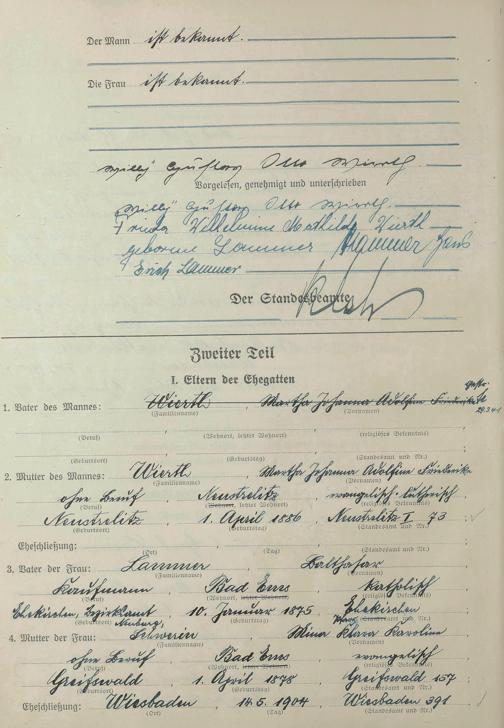 Der Mann ist bekannt.
Die Frau ist bekannt.
Willy Gustav Otto Wiertl
Vorgelesen, genehmigt und unterschrieben
Willy Gustav Otto Wiertl.
Frieda Wilhelmine Mathilde Wiertl
geborene Lammer Hammer Hans
Erich Lammer
Der Standesbeamte
Zweiter Teil
I. Eltern der Ehegatten
1. Vater des Mannes: Wiertl Martha Johanna Adolfine Friederike
(Familienname) (Vornamen)
(Beruf) (Wohnort, letzter Wohnort) (religiöses Bekenntnis)
(Geburtsort) (Geburtstag) (Standesamt und Nr.)
2. Mutter des Mannes: Wiertl Martha Johanna Adolfine Friederike
(Familienname) (Vornamen)
ohne Beruf Neustrelitz evangelisch-lutherisch
(Beruf) (Wohnort, letzter Wohnort) (religiöses Bekenntnis)
Neustrelitz 1. April 1886 Neustrelitz I 73
(Geburtsort) (Geburtstag) (Standesamt und Nr.)
Eheschließung:
(Ort) (Tag) (Standesamt und Nr.)
3. Vater der Frau: Lammer Balthasar
(Familienname) (Vornamen)
Kaufmann Bad Ems katholisch
(Beruf) (Wohnort, letzter Wohnort) (religiöses Bekenntnis)
Ehekirchen, Bezirksamt Neuburg, 10. Januar 1875 Ehekirchen
(Geburtsort) (Geburtstag) (Standesamt und Nr.)
4. Mutter der Frau: Schwerin Mina Klara Karoline
(Familienname) (Vornamen)
ohne Beruf Bad Ems evangelisch
(Beruf) (Wohnort, letzter Wohnort) (religiöses Bekenntnis)
Greifswald 1. April 1878 Greifswald 157
(Geburtsort) (Geburtstag) (Standesamt und Nr.)
Eheschließung: Wiesbaden 14.5.1904 Wiesbaden 391
(Ort) (Tag) (Standesamt und Nr.)